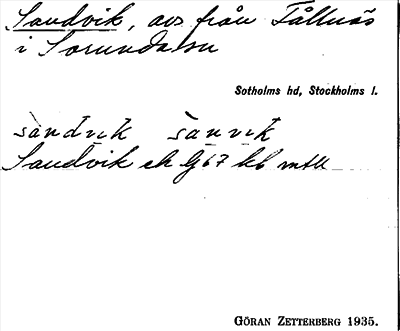 Sandvik, avs från Fållnäs
i Sorunda sn
Sotholms hd, Stockholms l.
sàndvik sanvik
Sandvik ek G67 kb mtll
GÖRAN ZETTERBERG 1935.